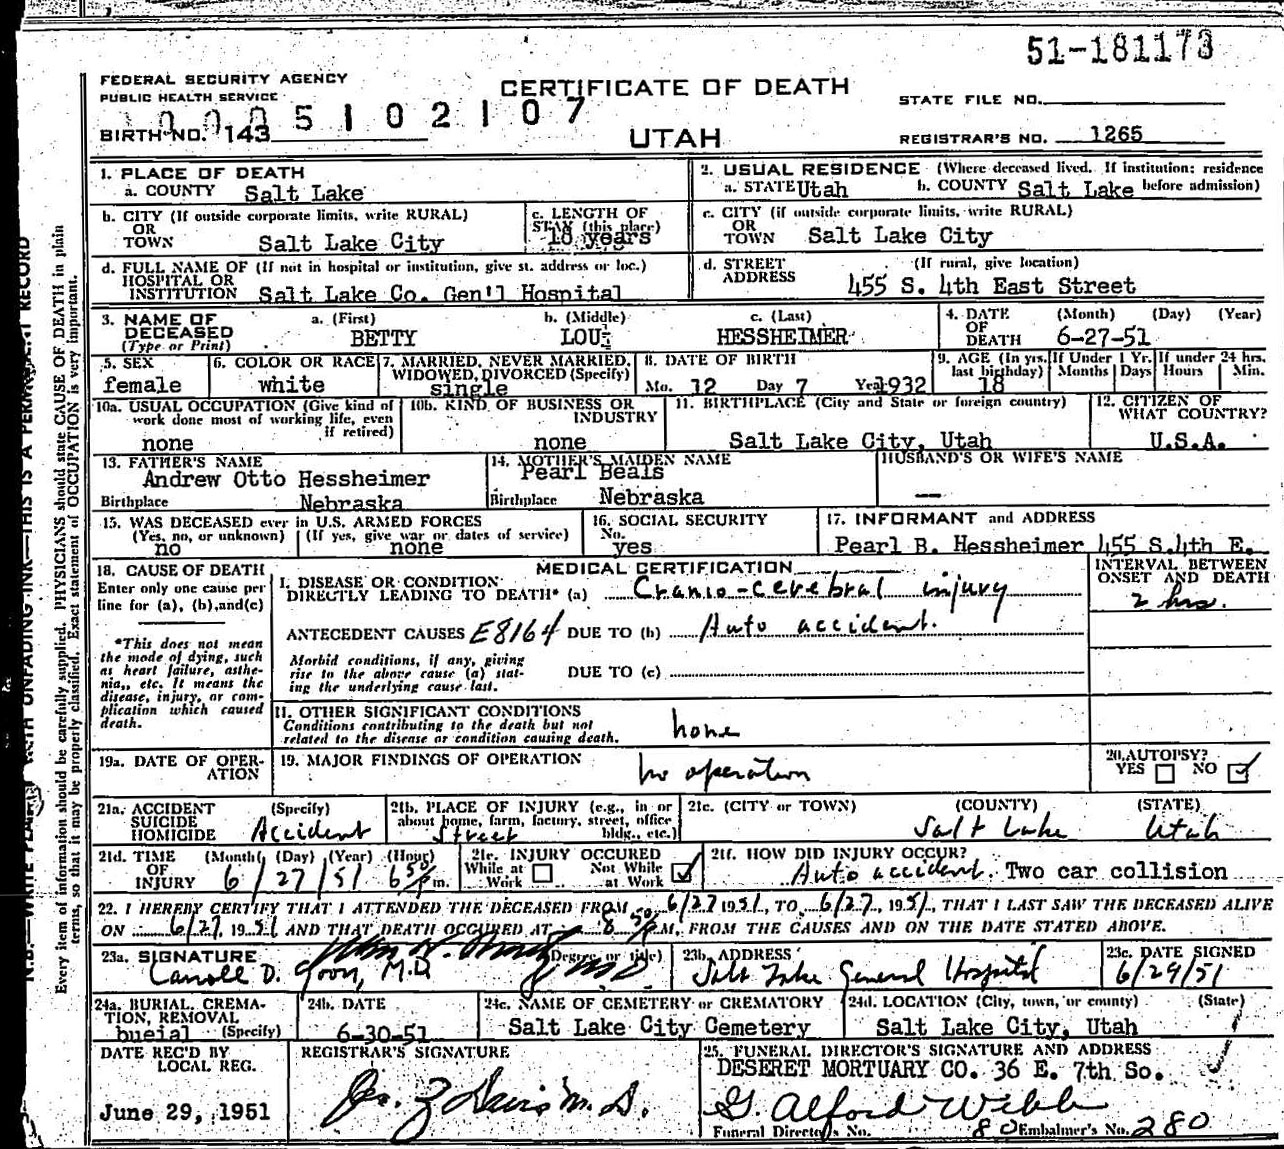 51-181173
FEDERAL SECURITY AGENCY
PUBLIC HEALTH SERVICE
CERTIFICATE OF DEATH
STATE FILE NO.
5102107
BIRTH NO. 143
UTAH
REGISTRAR'S NO. 1265
1. PLACE OF DEATH
a. COUNTY Salt Lake
2. USUAL RESIDENCE (Where deceased lived. If institution: residence
a. STATE Utah b. COUNTY Salt Lake before admission)
b. CITY (If outside corporate limits, write RURAL)
OR
TOWN Salt Lake City
c. LENGTH OF
STAY (this place)
18 years
c. CITY (if outside corporate limits, write RURAL)
OR
TOWN Salt Lake City
d. FULL NAME OF (If not in hospital or institution, give st. address or loc.)
HOSPITAL OR
INSTITUTION Salt Lake Co. Gen'l Hospital
d. STREET (If rural, give location)
ADDRESS 455 S. 4th East Street
3. NAME OF DECEASED
(Type or Print)
a. (First) b. (Middle) c. (Last)
BETTY LOU HESSHEIMER
4. DATE OF DEATH (Month) (Day) (Year)
6-27-51
5. SEX
female
6. COLOR OR RACE
white
7. MARRIED, NEVER MARRIED,
WIDOWED, DIVORCED (Specify)
single
8. DATE OF BIRTH
Mo. 12 Day 7 Year 1932
9. AGE (In yrs. last birthday) 18
If Under 1 Yr. Months Days
If under 24 hrs. Hours Min.
10a. USUAL OCCUPATION (Give kind of
work done most of working life, even
if retired)
none
10b. KIND OF BUSINESS OR
INDUSTRY
none
11. BIRTHPLACE (City and State or foreign country)
Salt Lake City, Utah
12. CITIZEN OF
WHAT COUNTRY?
U.S.A.
13. FATHER'S NAME
Andrew Otto Hessheimer
Birthplace Nebraska
14. MOTHER'S MAIDEN NAME
Pearl Beals
Birthplace Nebraska
HUSBAND'S OR WIFE'S NAME
—
15. WAS DECEASED ever in U.S. ARMED FORCES
(Yes, no, or unknown) (If yes, give war or dates of service)
no none
16. SOCIAL SECURITY
No.
yes
17. INFORMANT and ADDRESS
Pearl B. Hessheimer 455 S.4th E.
18. CAUSE OF DEATH
Enter only one cause per
line for (a), (b), and (c)
*This does not mean
the mode of dying, such
as heart failure, asthe-
nia, etc. It means the
disease, injury, or com-
plication which caused
death.
MEDICAL CERTIFICATION
I. DISEASE OR CONDITION
DIRECTLY LEADING TO DEATH* (a) Cranio-cerebral injury
INTERVAL BETWEEN
ONSET AND DEATH
2 hrs.
ANTECEDENT CAUSES E8164 DUE TO (b) Auto accident.
Morbid conditions, if any, giving
rise to the above cause (a) stat-
ing the underlying cause last.
DUE TO (c)
II. OTHER SIGNIFICANT CONDITIONS
Conditions contributing to the death but not
related to the disease or condition causing death.
none
19a. DATE OF OPER-
ATION
19. MAJOR FINDINGS OF OPERATION
no operation
20. AUTOPSY?
YES NO
21a. ACCIDENT (Specify)
SUICIDE
HOMICIDE Accident
21b. PLACE OF INJURY (e.g., in or
about home, farm, factory, street, office
bldg., etc.)
Street
21c. (CITY or TOWN) (COUNTY) (STATE)
Salt Lake Utah
21d. TIME OF INJURY (Month) (Day) (Year) (Hour)
6/27/51 6 50 p m.
21e. INJURY OCCURED
While at Work Not While at Work
21f. HOW DID INJURY OCCUR?
Auto accident. Two car collision
22. I HEREBY CERTIFY THAT I ATTENDED THE DECEASED FROM 6/27 1951, TO 6/27, 1951, THAT I LAST SAW THE DECEASED ALIVE
ON 6/27, 1951 AND THAT DEATH OCCURED AT 8 50 P.M, FROM THE CAUSES AND ON THE DATE STATED ABOVE.
23a. SIGNATURE (Degree or title)
Carroll D. Goon, M.D.
23b. ADDRESS
Salt Lake General Hospital
23c. DATE SIGNED
6/29/51
24a. BURIAL, CREMA-
TION, REMOVAL
bueial (Specify)
24b. DATE
6-30-51
24c. NAME OF CEMETERY or CREMATORY
Salt Lake City Cemetery
24d. LOCATION (City, town, or county) (State)
Salt Lake City, Utah
DATE REC'D BY
LOCAL REG.
June 29, 1951
REGISTRAR'S SIGNATURE
25. FUNERAL DIRECTOR'S SIGNATURE AND ADDRESS
DESERET MORTUARY CO. 36 E. 7th So.
G. Alford Webb
Funeral Director's No. 80 Embalmer's No. 280
N.B.—WRITE PLAINLY WITH UNFADING INK—THIS IS A PERMANENT RECORD
Every item of information should be carefully supplied. PHYSICIANS should state CAUSE OF DEATH in plain
terms, so that it may be properly classified. Exact statement of OCCUPATION is very important.